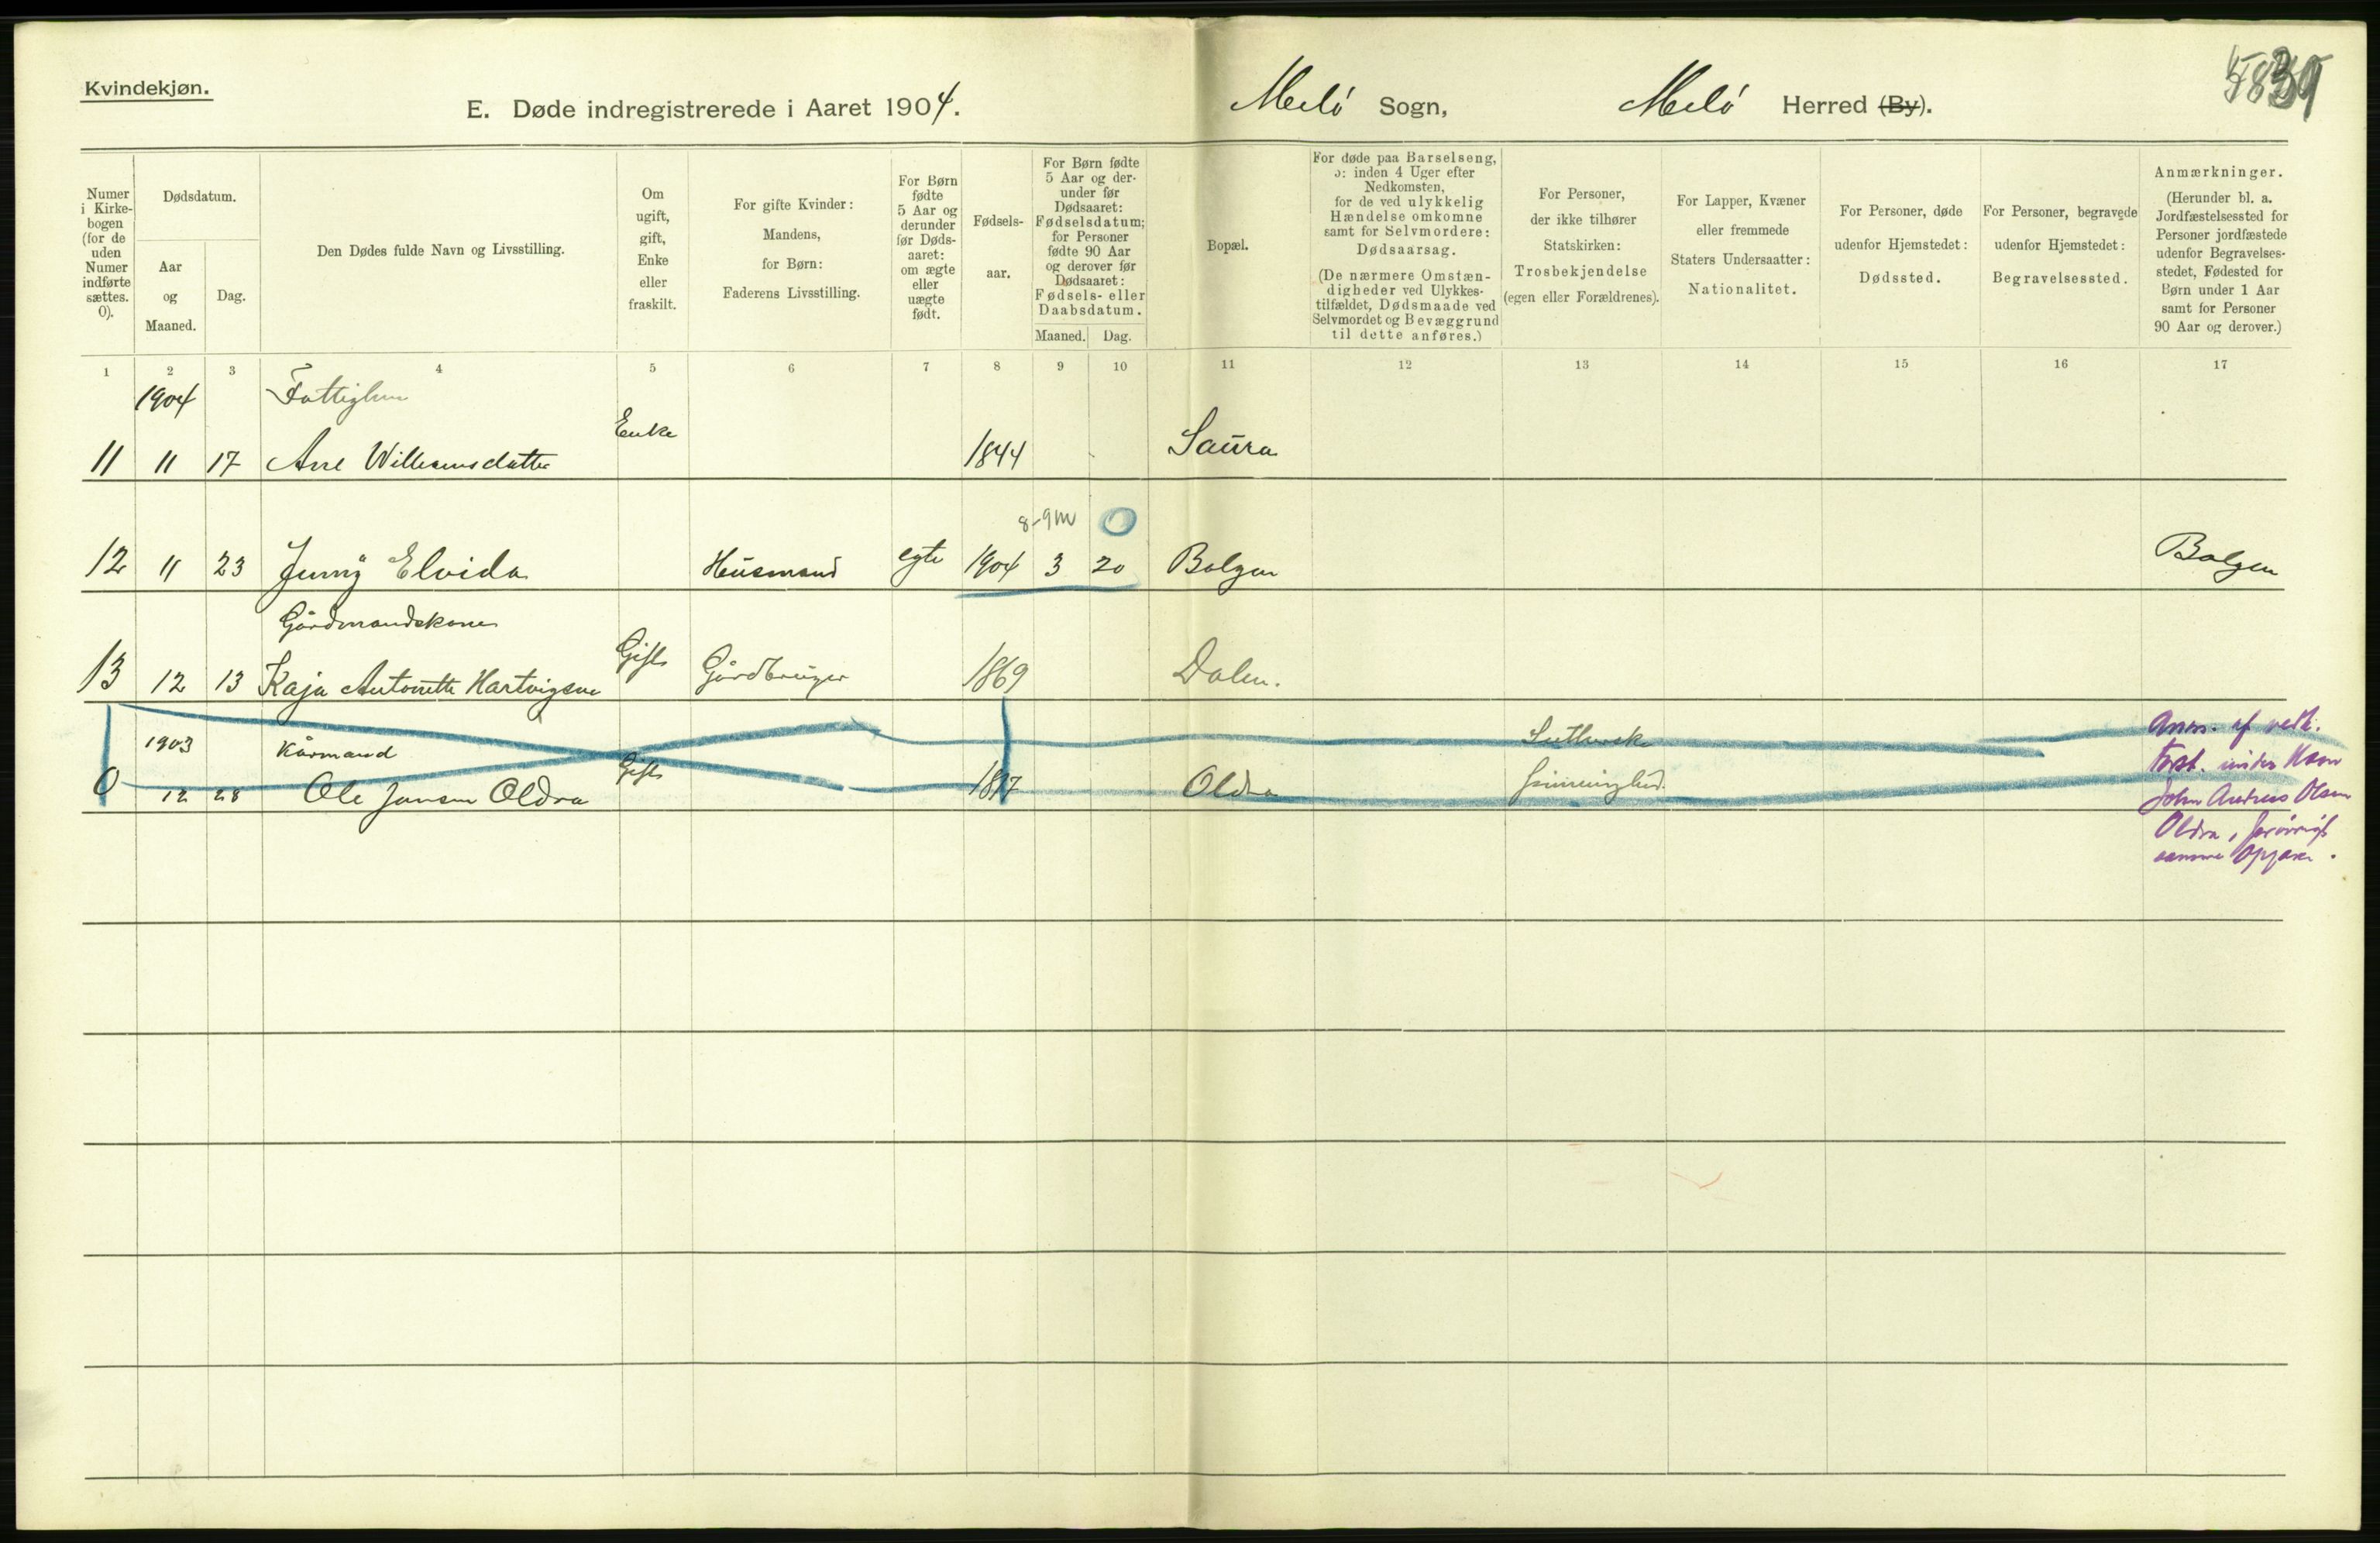 Kvindekjøn.
E. Døde indregistrerede i Aaret 1904.
Melö Sogn, Melö Herred (By).
Numer
i Kirke-
bogen
(for de
uden
Numer
indførte
sættes.
0).
Dødsdatum.
Aar
og
Maaned.
Dag.
Den Dødes fulde Navn og Livsstilling.
Om
ugift,
gift,
Enke
eller
fraskilt.
For gifte Kvinder:
Mandens,
for Børn:
Faderens Livsstilling.
For Børn
fødte
5 Aar og
derunder
før Døds-
aaret:
om ægte
eller
uægte
født.
Fødsels-
aar.
For Børn fødte
5 Aar og der-
under før
Dødsaaret:
Fødselsdatum;
for Personer
fødte 90 Aar
og derover før
Dødsaaret:
Fødsels- eller
Daabsdatum.
Maaned. Dag.
Bopæl.
For døde paa Barselseng,
ɔ: inden 4 Uger efter
Nedkomsten,
for de ved ulykkelig
Hændelse omkomne
samt for Selvmordere:
Dødsaarsag.
(De nærmere Omstæn-
digheder ved Ulykkes-
tilfældet, Dødsmaade ved
Selvmordet og Bevæggrund
til dette anføres.)
For Personer,
der ikke tilhører
Statskirken:
Trosbekjendelse
(egen eller Forældrenes).
For Lapper, Kvæner
eller fremmede
Staters Undersaatter:
Nationalitet.
For Personer, døde
udenfor Hjemstedet:
Dødssted.
For Personer, begravede
udenfor Hjemstedet:
Begravelsessted.
Anmærkninger.
(Herunder bl. a.
Jordfæstelsessted for
Personer jordfæstede
udenfor Begravelses-
stedet, Fødested for
Børn under 1 Aar
samt for Personer
90 Aar og derover.)
1 2 3 4 5 6 7 8 9 10 11 12 13 14 15 16 17
1904 Fattiglem
11 11 17 Ane Willumsdatter Enke 1844 Saura
8-9 m 0
12 11 23 Jenny Elvida Husmand egte 1904 3 20 Bolgen Bolgen
Gårdmandskone
13 12 13 Kaja Antonette Hartvigsen Gift Gårdbruger 1869 Dalen.
1903 Kårmand Luthersk
0 12 28 Ole Jansen Oldra Gift 1817 Oldra
Anm. af vedk.
Prest. under Navn
John Andreas Olsen
Oldra, forøvrigt
samme Opgave.